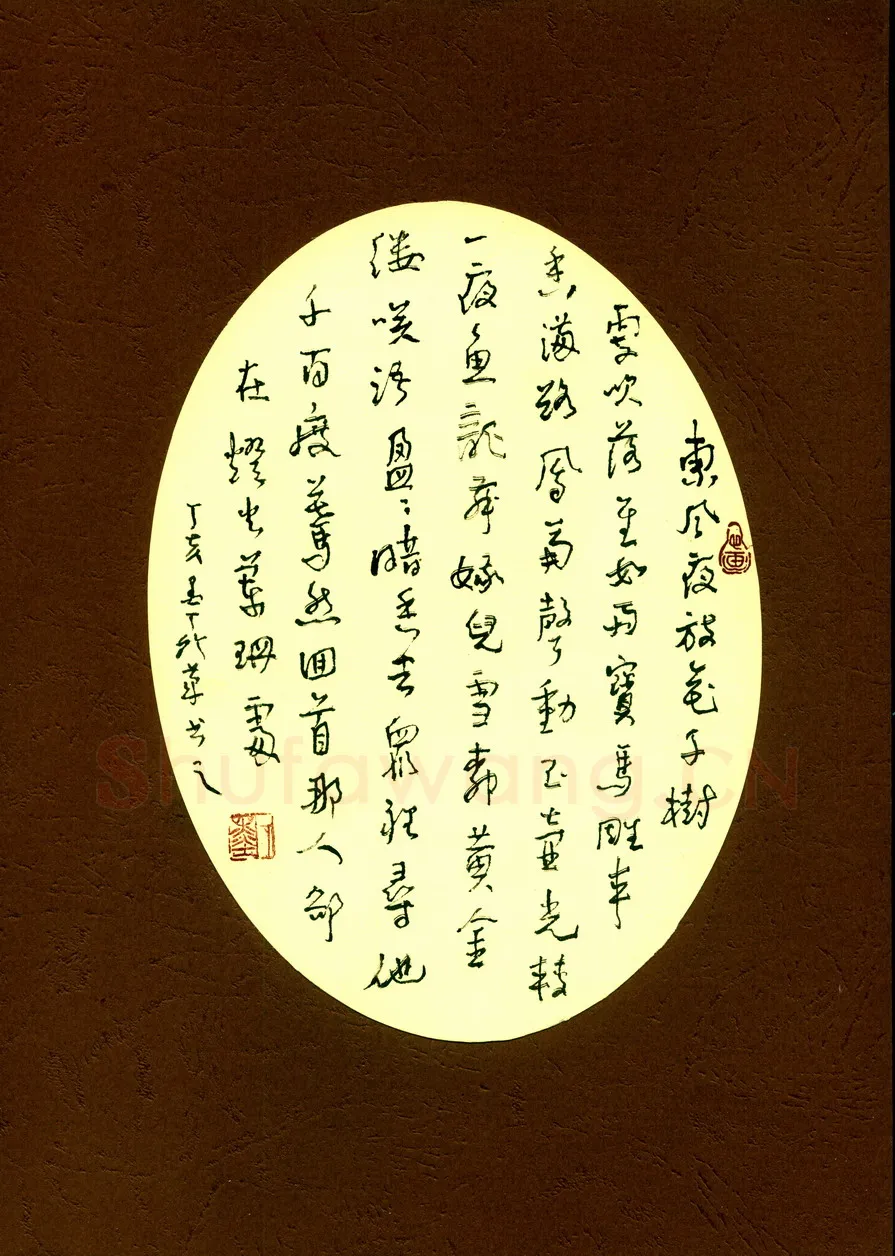 東風夜放花千樹
更吹落星如雨寶馬雕車
香滿路鳳簫聲動玉壺光轉
一夜魚龍舞蛾兒雪柳黃金
縷咲語盈〻暗香去眾裡尋他
千百度驀然回首那人卻
在燈火闌珊處
丁亥書之
Shufawang.CN